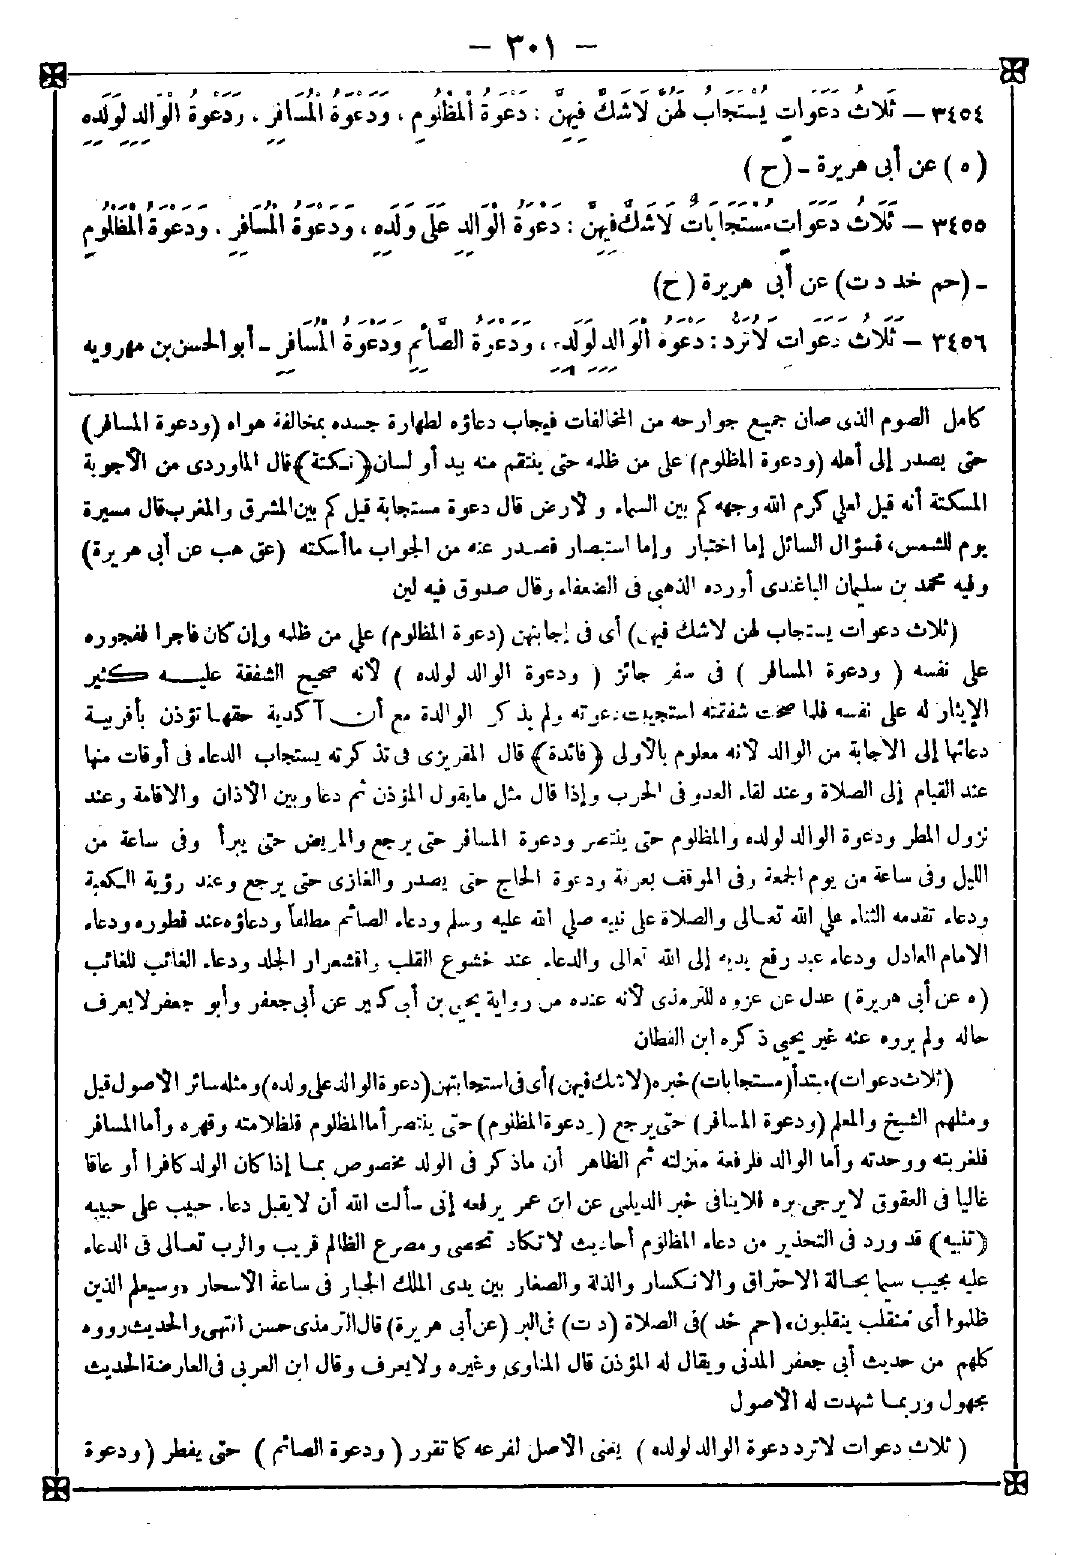 — ٣٠١ —
٣٤٥٤ — ثَلَاثُ دَعَوَاتٍ يُسْتَجَابُ لَهُنَّ لَاشَكَّ فِيهِنَّ : دَعْوَةُ الْمَظْلُومِ ، وَدَعْوَةُ الْمُسَافِرِ ، وَدَعْوَةُ الْوَالِدِ لِوَلَدِهِ
( ه ) عن أبى هريرة - (ح)
٣٤٥٥ — ثَلَاثُ دَعَوَاتٍ مُسْتَجَابَاتٌ لَاشَكَّ فِيهِنَّ : دَعْوَةُ الْوَالِدِ عَلَى وَلَدِهِ ، وَدَعْوَةُ الْمُسَافِرِ . وَدَعْوَةُ الْمَظْلُومِ
- (حم خد د ت) عن أبى هريرة (ح)
٣٤٥٦ — ثَلَاثُ دَعَوَاتٍ لَاتُرَدُّ : دَعْوَةُ الْوَالِدِ لِوَلَدِهِ ، وَدَعْوَةُ الصَّائِمِ وَدَعْوَةُ الْمُسَافِرِ - أبو الحسن بن مهرويه
كامل الصوم الذى صان جميع جوارحه من المخالفات فيجاب دعاؤه لطهارة جسده بمخالفة هواه (ودعوة المسافر)
حتى يصدر إلى أهله (ودعوة المظلوم) على من ظلمه حتى ينتقم منه بيد أو لسان (نكتة) قال الماوردى من الأجوبة
المسكتة أنه قيل لعلي كرم الله وجهه كم بين السماء والأرض قال دعوة مستجابة قيل كم بين المشرق والمغرب قال مسيرة
يوم للشمس، فسؤال السائل إما اختبار وإما استبصار فصدر عنه من الجواب ما أسكته (عق هب عن أبى هريرة)
وفيه محمد بن سليمان الباغندى أورده الذهبي فى الضعفاء وقال صدوق فيه لين
(ثلاث دعوات يستجاب لهن لاشك فيهن) أى فى إجابتهن (دعوة المظلوم) على من ظلمه وإن كان فاجرا ففجوره
على نفسه ( ودعوة المسافر ) فى سفر جائز ( ودعوة الوالد لولده ) لأنه صحيح الشفقة عليه كثير
الإيثار له على نفسه فلما صحت شفقته استجيبت دعوته ولم يذكر الوالدة مع أن آكدية حقها تؤذن بأقربية
دعائها إلى الاجابة من الوالد لانه معلوم بالأولى (فائدة) قال المقريزى فى تذكرته يستجاب الدعاء فى أوقات منها
عند القيام إلى الصلاة وعند لقاء العدو فى الحرب وإذا قال مثل مايقول المؤذن ثم دعا وبين الأذان والاقامة وعند
نزول المطر ودعوة الوالد لولده والمظلوم حتى ينتصر ودعوة المسافر حتى يرجع والمريض حتى يبرأ وفى ساعة من
الليل وفى ساعة من يوم الجمعة وفى الموقف بعرفة ودعوة الحاج حتى يصدر والغازى حتى يرجع وعند رؤية الكعبة
ودعاء تقدمه الثناء على الله تعالى والصلاة على نبيه صلى الله عليه وسلم ودعاء الصائم مطلقاً ودعاؤه عند فطوره ودعاء
الامام العادل ودعاء عبد رفع يديه إلى الله تعالى والدعاء عند خشوع القلب واقشعرار الجلد ودعاء الغائب للغائب
(ه عن أبى هريرة) عدل عن عزوه للترمذى لأنه عنده من رواية يحيى بن أبى كبير عن أبى جعفر وأبو جعفر لايعرف
حاله ولم يروه عنه غير يحيى ذكره ابن القطان
(ثلاث دعوات) مبتدأ (مستجابات) خبره (لاشك فيهن) أى فى استجابتهن (دعوة الوالد على ولده) ومثله سائر الأصول قيل
ومثلهم الشيخ والمعلم (ودعوة المسافر) حتى يرجع (ودعوة المظلوم) حتى ينتصر أما المظلوم فلظلامته وقهره وأما المسافر
فلغربته ووحدته وأما الوالد فلرفعة منزلته ثم الظاهر أن ماذكر فى الولد مخصوص بما إذا كان الولد كافرا أو عاقا
غاليا فى العقوق لايرجى بره فلاينافى خبر الديلمى عن ابن عمر يرفعه إنى سألت الله أن لايقبل دعاء حبيب على حبيبه
(تنبيه) قد ورد فى التحذير من دعاء المظلوم أحاديث لاتكاد تحصى ومصرع الظالم قريب والرب تعالى فى الدعاء
عليه مجيب سيما بحالة الاحتراق والانكسار والذلة والصغار بين يدى الملك الجبار فى ساعة الأسحار «وسيعلم الذين
ظلموا أى منقلب ينقلبون» (حم خد) فى الصلاة (د ت) فى البر (عن أبى هريرة) قال الترمذى حسن انتهى والحديث رووه
كلهم من حديث أبى جعفر المدنى ويقال له المؤذن قال المناوى وغيره ولايعرف وقال ابن العربى فى العارضة الحديث
مجهول وربما شهدت له الأصول
( ثلاث دعوات لاترد دعوة الوالد لولده ) يعنى الأصل لفرعه كما تقرر ( ودعوة الصائم ) حتى يفطر (ودعوة